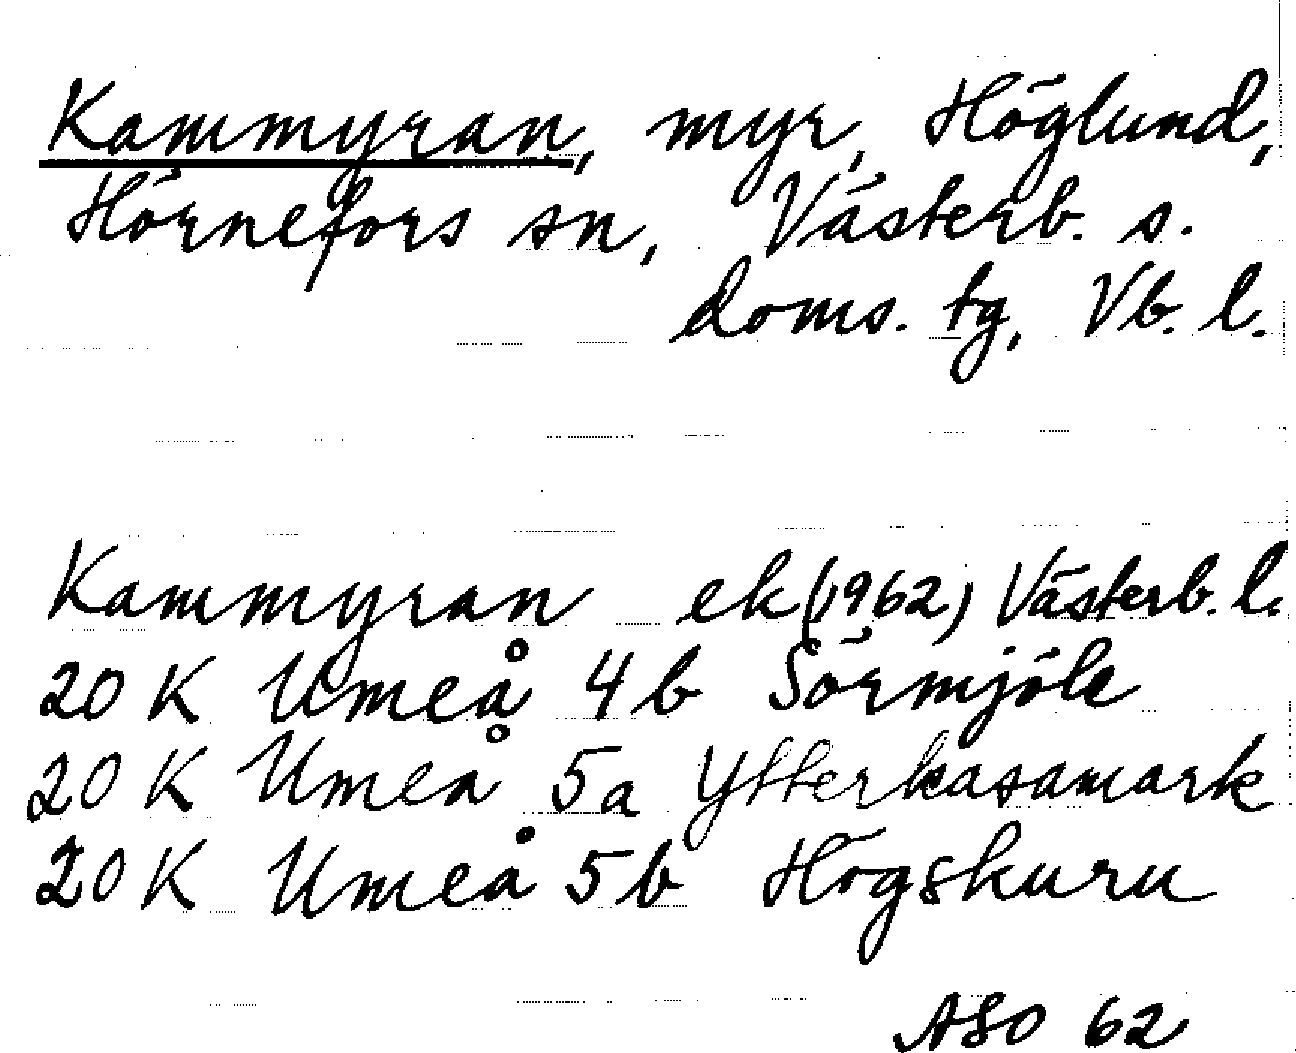 Kammyran, myr, Höglund,
Hörnefors sn, Västerb. s.
doms. tg, Vb. l.
Kammyran ek (1962) Västerb. l.
20 K Umeå 4 b Sörmjöle
20 K Umeå 5a Ytterkasamark
20 K Umeå 5 b Högskuru
ASO 62